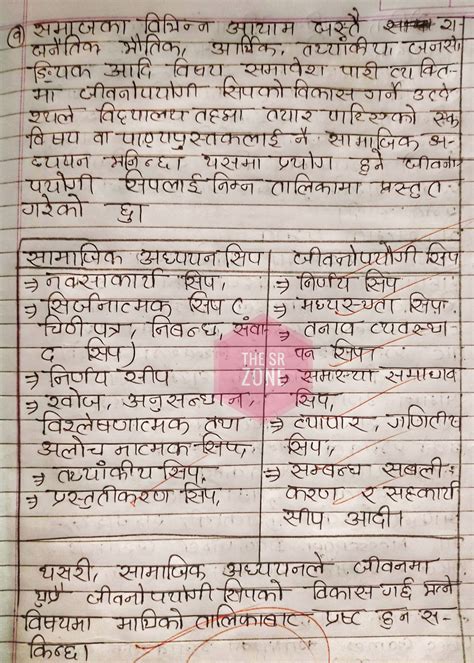 (१) समाजका विभिन्न आयाम जस्तै रा-
जनैतिक भौतिक, आर्थिक, तथ्यांकीय जनसां-
ङ्ख्यिक आदि विषय समावेश पारी व्यक्ति-
मा जीवनोपयोगी सिपको विकास गर्ने उद्दे-
श्यले विद्यालय तहमा तयार पारिएको एक
विषय वा पाठ्यपुस्तकलाई नै सामाजिक अ-
ध्ययन भनिन्छ। यसमा प्रयोग हुने जीवनो-
पयोगी सिपलाई निम्न तालिकामा प्रस्तुत
गरेको छु।
सामाजिक अध्ययन सिप
⇒ नक्साकार्य सिप,
⇒ सिर्जनात्मक सिप (
चिठीपत्र, निबन्ध, संवा-
द सिप)
⇒ निर्णय सीप
⇒ खोज, अनुसन्धान,
विश्लेषणात्मक तथा
अलोचनात्मक सिप,
⇒ तथ्यांकीय सिप,
⇒ प्रस्तुतीकरण सिप,
जीवनोपयोगी सिप
⇒ निर्णय सिप
⇒ मध्यस्थता सिप,
⇒ तनाव व्यवस्था-
पन सिप,
⇒ समास्या समाधान
सिप,
⇒ व्यापार, गणितीय
सिप,
⇒ सम्बन्ध सबली-
करण र सहकार्य
सीप आदी।
THE SR
ZONE
यसरी, सामाजिक अध्ययनले जीवनमा
जीवनोपयोगी सिपको विकास गर्छ भन्ने
विषयमा माथिको तालिकाबाट प्रष्ट हुन स-
किन्छ।